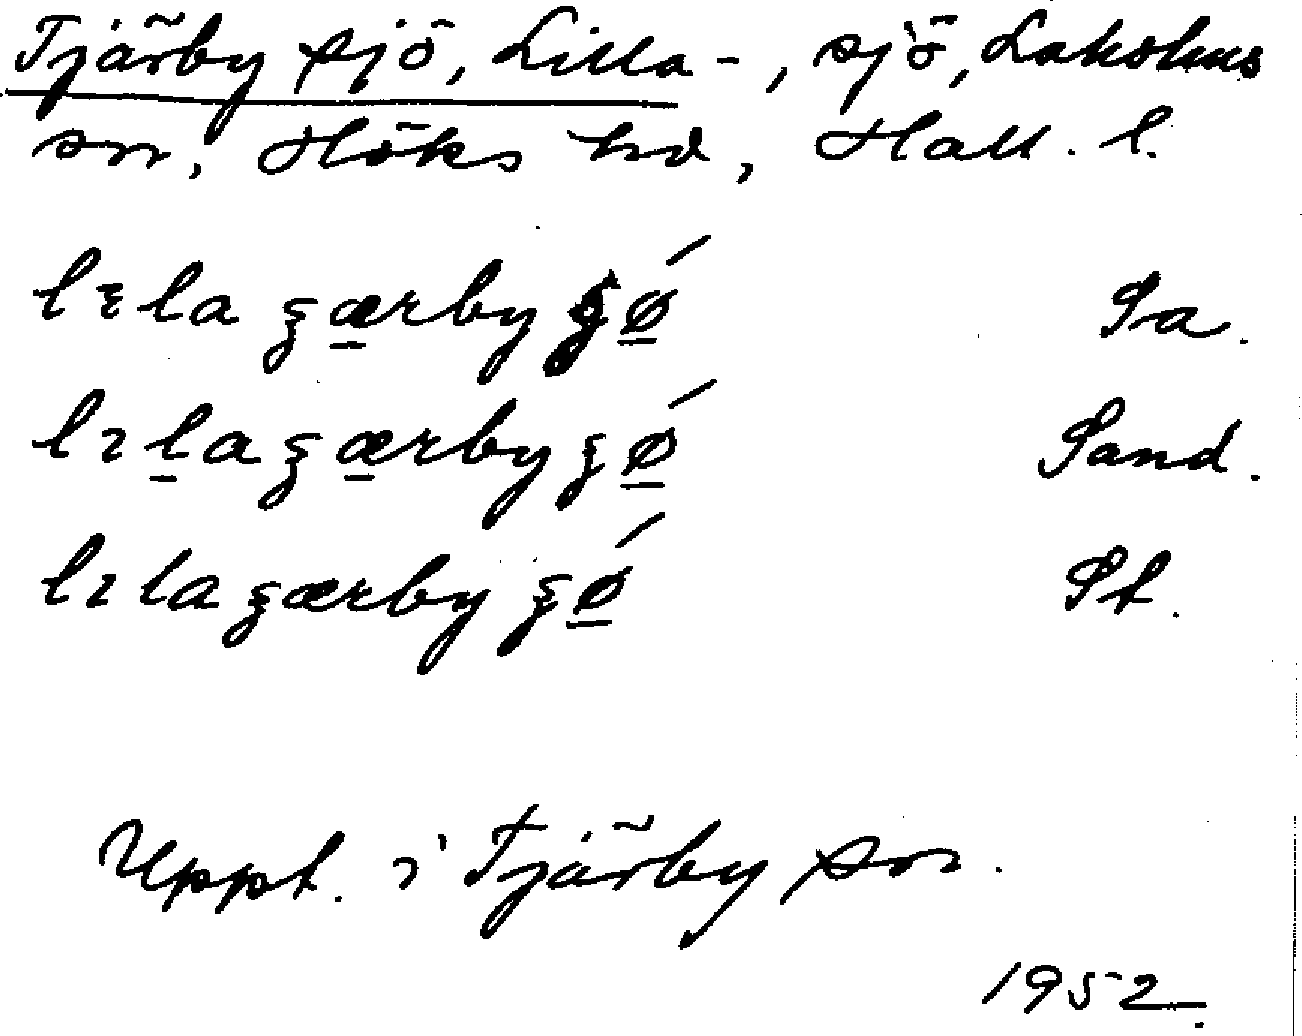 Tjärby sjö, Lilla -, sjö, Laholms
sn, Höks hd, Hall. l.
lɪla ʒærby ʒǿ Sa.
lɪla ʒærby ʒǿ Sand.
lɪla ʒærby ʒǿ St.
Uppt. i Tjärby sn.
1952.